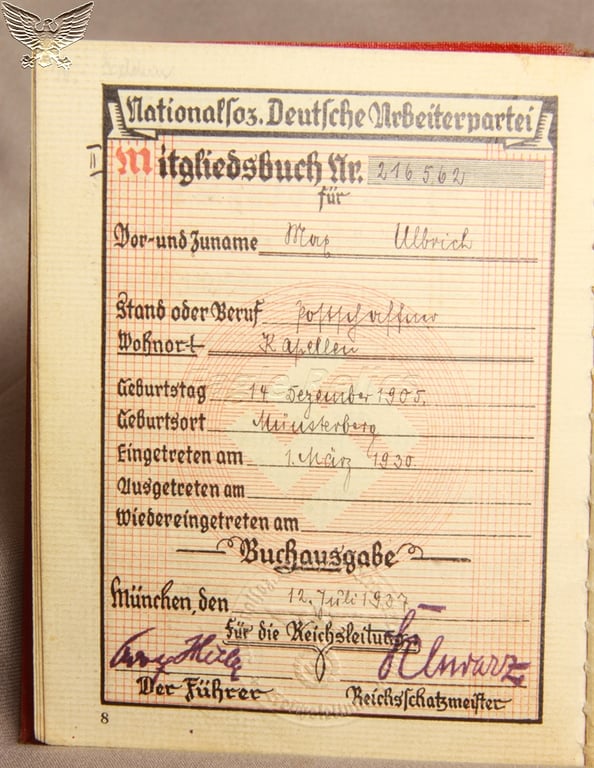 Nationalsoz. Deutsche Arbeiterpartei
Mitgliedsbuch Nr. 216562
für
Vor- und Zuname Max Ulbrich
Stand oder Beruf Postschaffner
Wohnort Kapellen
Geburtstag 14 Dezember 1905.
Geburtsort Münsterberg
Eingetreten am 1. März 1930
Ausgetreten am
Wiedereingetreten am
Buchausgabe
München, den 12. Juli 1937
für die Reichsleitung:
Schwarz
Der Führer Reichsschatzmeister
8